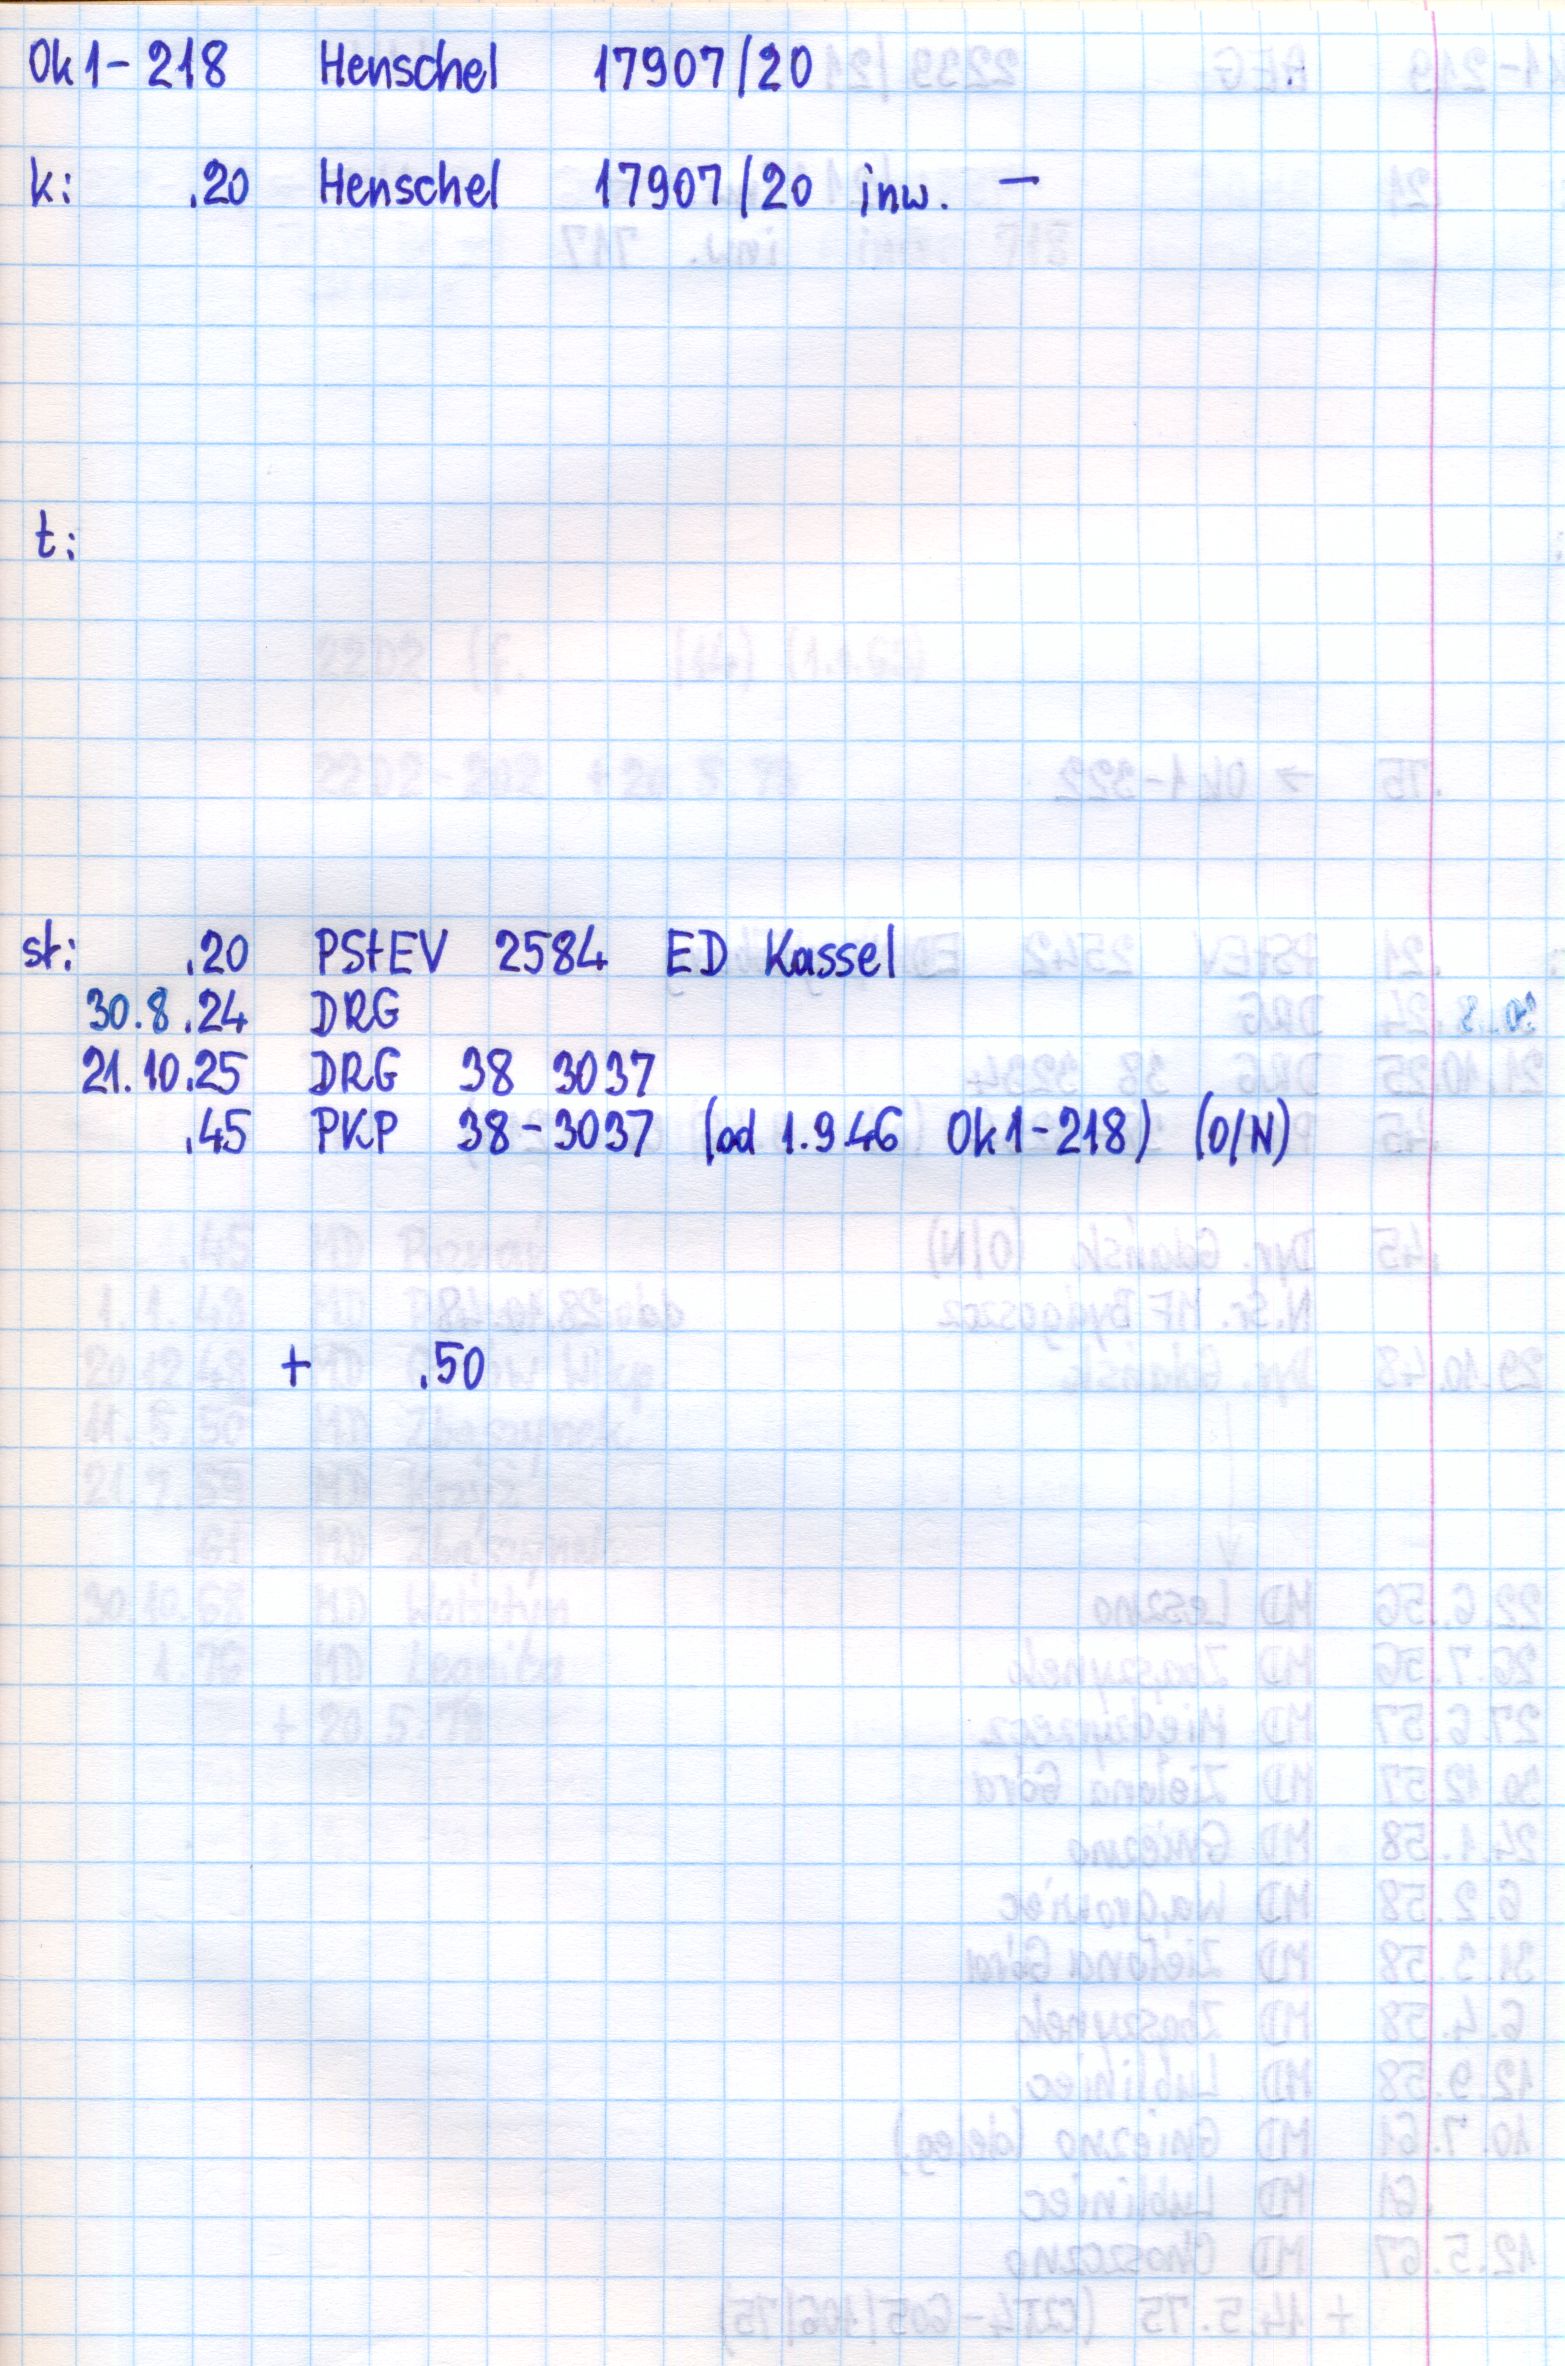 Ok1-218 Henschel 17907/20
k: .20 Henschel 17907/20 inw. –
t:
st: .20 PStEV 2584 ED Kassel
30.8.24 DRG
21.10.25 DRG 38 3037
.45 PKP 38-3037 (od 1.9.46 Ok1-218) (O/N)
+ .50